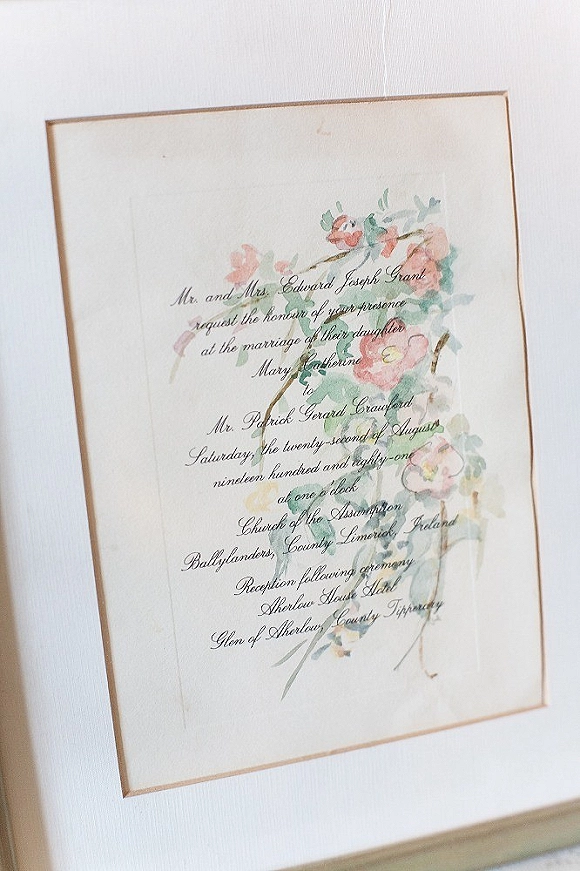 Mr. and Mrs. Edward Joseph Grant
request the honour of your presence
at the marriage of their daughter
Mary Catherine
to
Mr. Patrick Gerard Crawford
Saturday, the twenty-second of August
nineteen hundred and eighty-one
at one o'clock
Church of the Assumption
Ballylanders, County Limerick, Ireland
Reception following ceremony
Aherlow House Hotel
Glen of Aherlow, County Tipperary